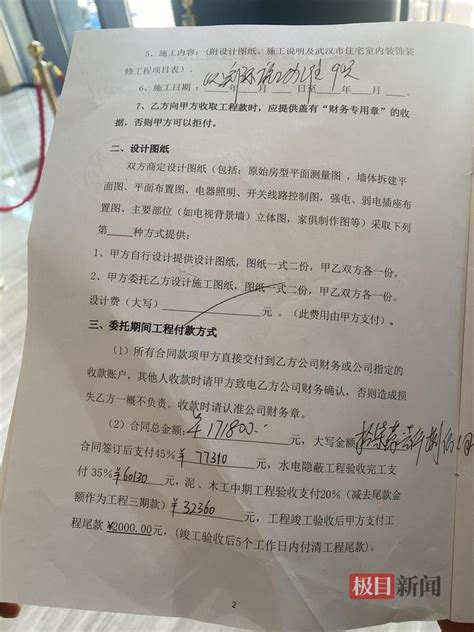 5、施工内容：(附设计图纸、施工说明及武汉市住宅室内装饰装
修工程项目表）。
6、施工日期：____年____月____日至____年____月____。
7、乙方向甲方收取工程款时，应提供盖有“财务专用章”的收
据，否则甲方可以拒付。
二、设计图纸
双方商定设计图纸（包括：原始房型平面测量图，墙体拆建平
面图、平面布置图、电器照明、开关线路控制图，强电、弱电插座布
置图、主要部位（如电视背景墙）立体图，家俱制作图等）采取下列
第____种方式提供：
1、甲方自行设计提供设计图纸，图纸一式二份，甲乙双方各一份。
2、甲方委托乙方设计施工图纸，图纸一式二份，甲乙双方各一份。
设计费（大写）____元。（此费用由甲方支付）。
三、委托期间工程付款方式
（1）所有合同款项甲方直接交付到乙方公司财务或公司指定的
收款账户，其他人收款时请甲方致电乙方公司财务确认，否则造成损
失乙方一概不负责。收款时请认准公司财务章。
（2）合同总金额：¥171800.-元，大写金额
合同签订后支付45%¥77310元，水电隐蔽工程验收完工支
付 35%¥60130元，泥、木工中期工程验收支付20%（减去尾款金
额作为工程三期款）¥32360元，工程竣工验收后甲方支付工
程尾款 ¥2000.00元，(竣工验收后5个工作日内付清工程尾款)。
2
极目新闻